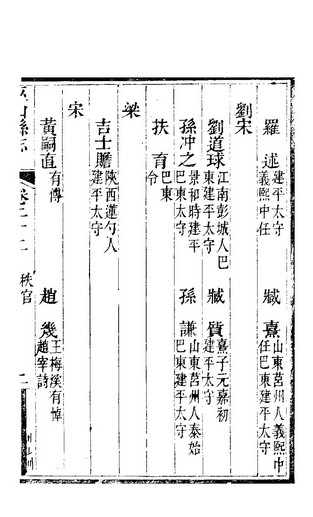 羅述 建平太守義熙中任
臧熹 山東莒州人義熙中任巴東建平太守
劉宋
劉道球 江南彭城人巴東建平太守
臧質 熹子元嘉初建平太守
孫沖之 景和時建平巴東太守
孫謙 山東莒州人泰始巴東建平太守
扶育 巴東令
梁
吉士瞻 陝西蓮勺人建平太守
宋
黃嗣直 有傳
趙幾 王梅溪有悼趙宰詩
山縣志
卷二十二
秩官
二